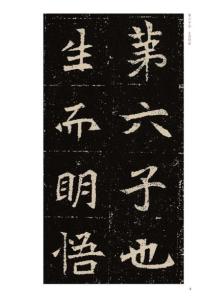 第六子也
生而明悟